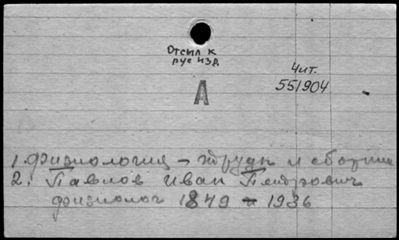 Отсыл к
рус изд.
Чит.
551904
А
1. Физиология – труды и сборники
2. Павлов Иван Петрович
физиолог 1849 – 1936